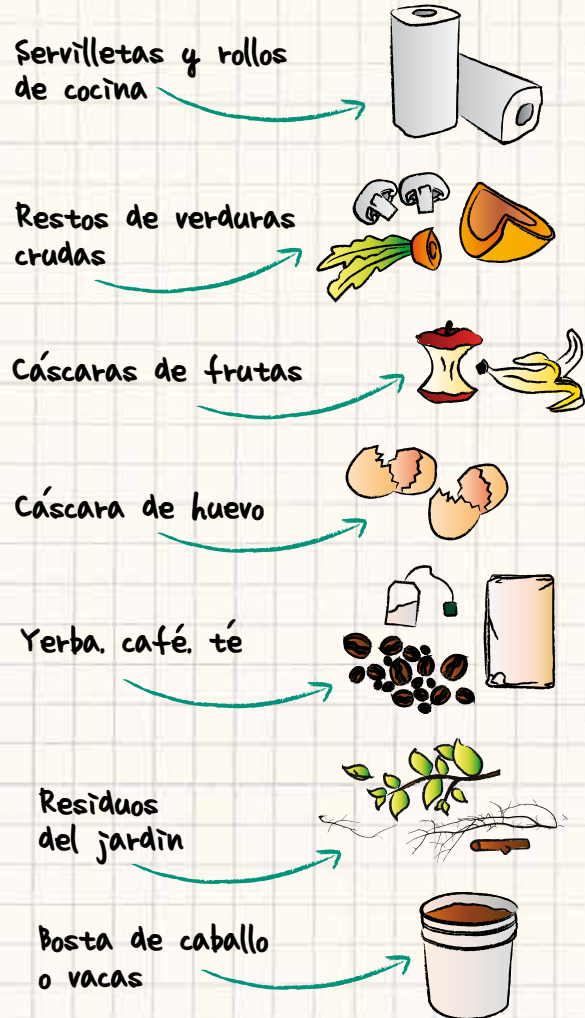 Servilletas y rollos
de cocina
Restos de verduras
crudas
Cáscaras de frutas
Cáscara de huevo
Yerba. café. té
Residuos
del jardin
Bosta de caballo
o vacas